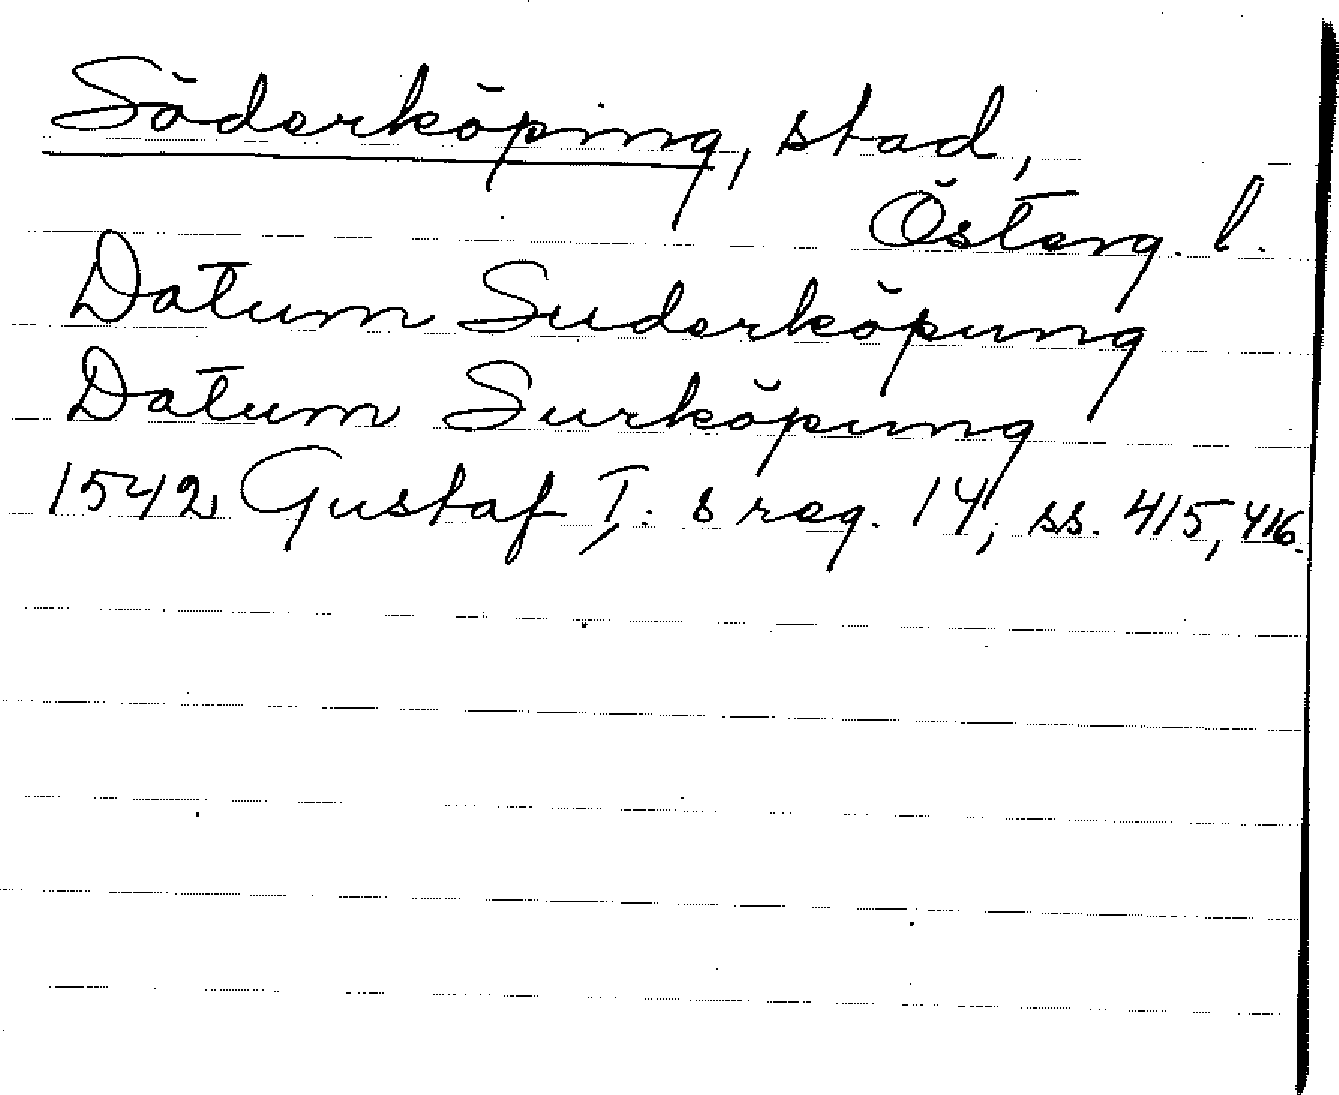 Söderköping, stad,
Österg. l.
Datum Suderköpung
Datum Surköpung
1542 Gustaf I:s reg. 14, ss. 415, 416.